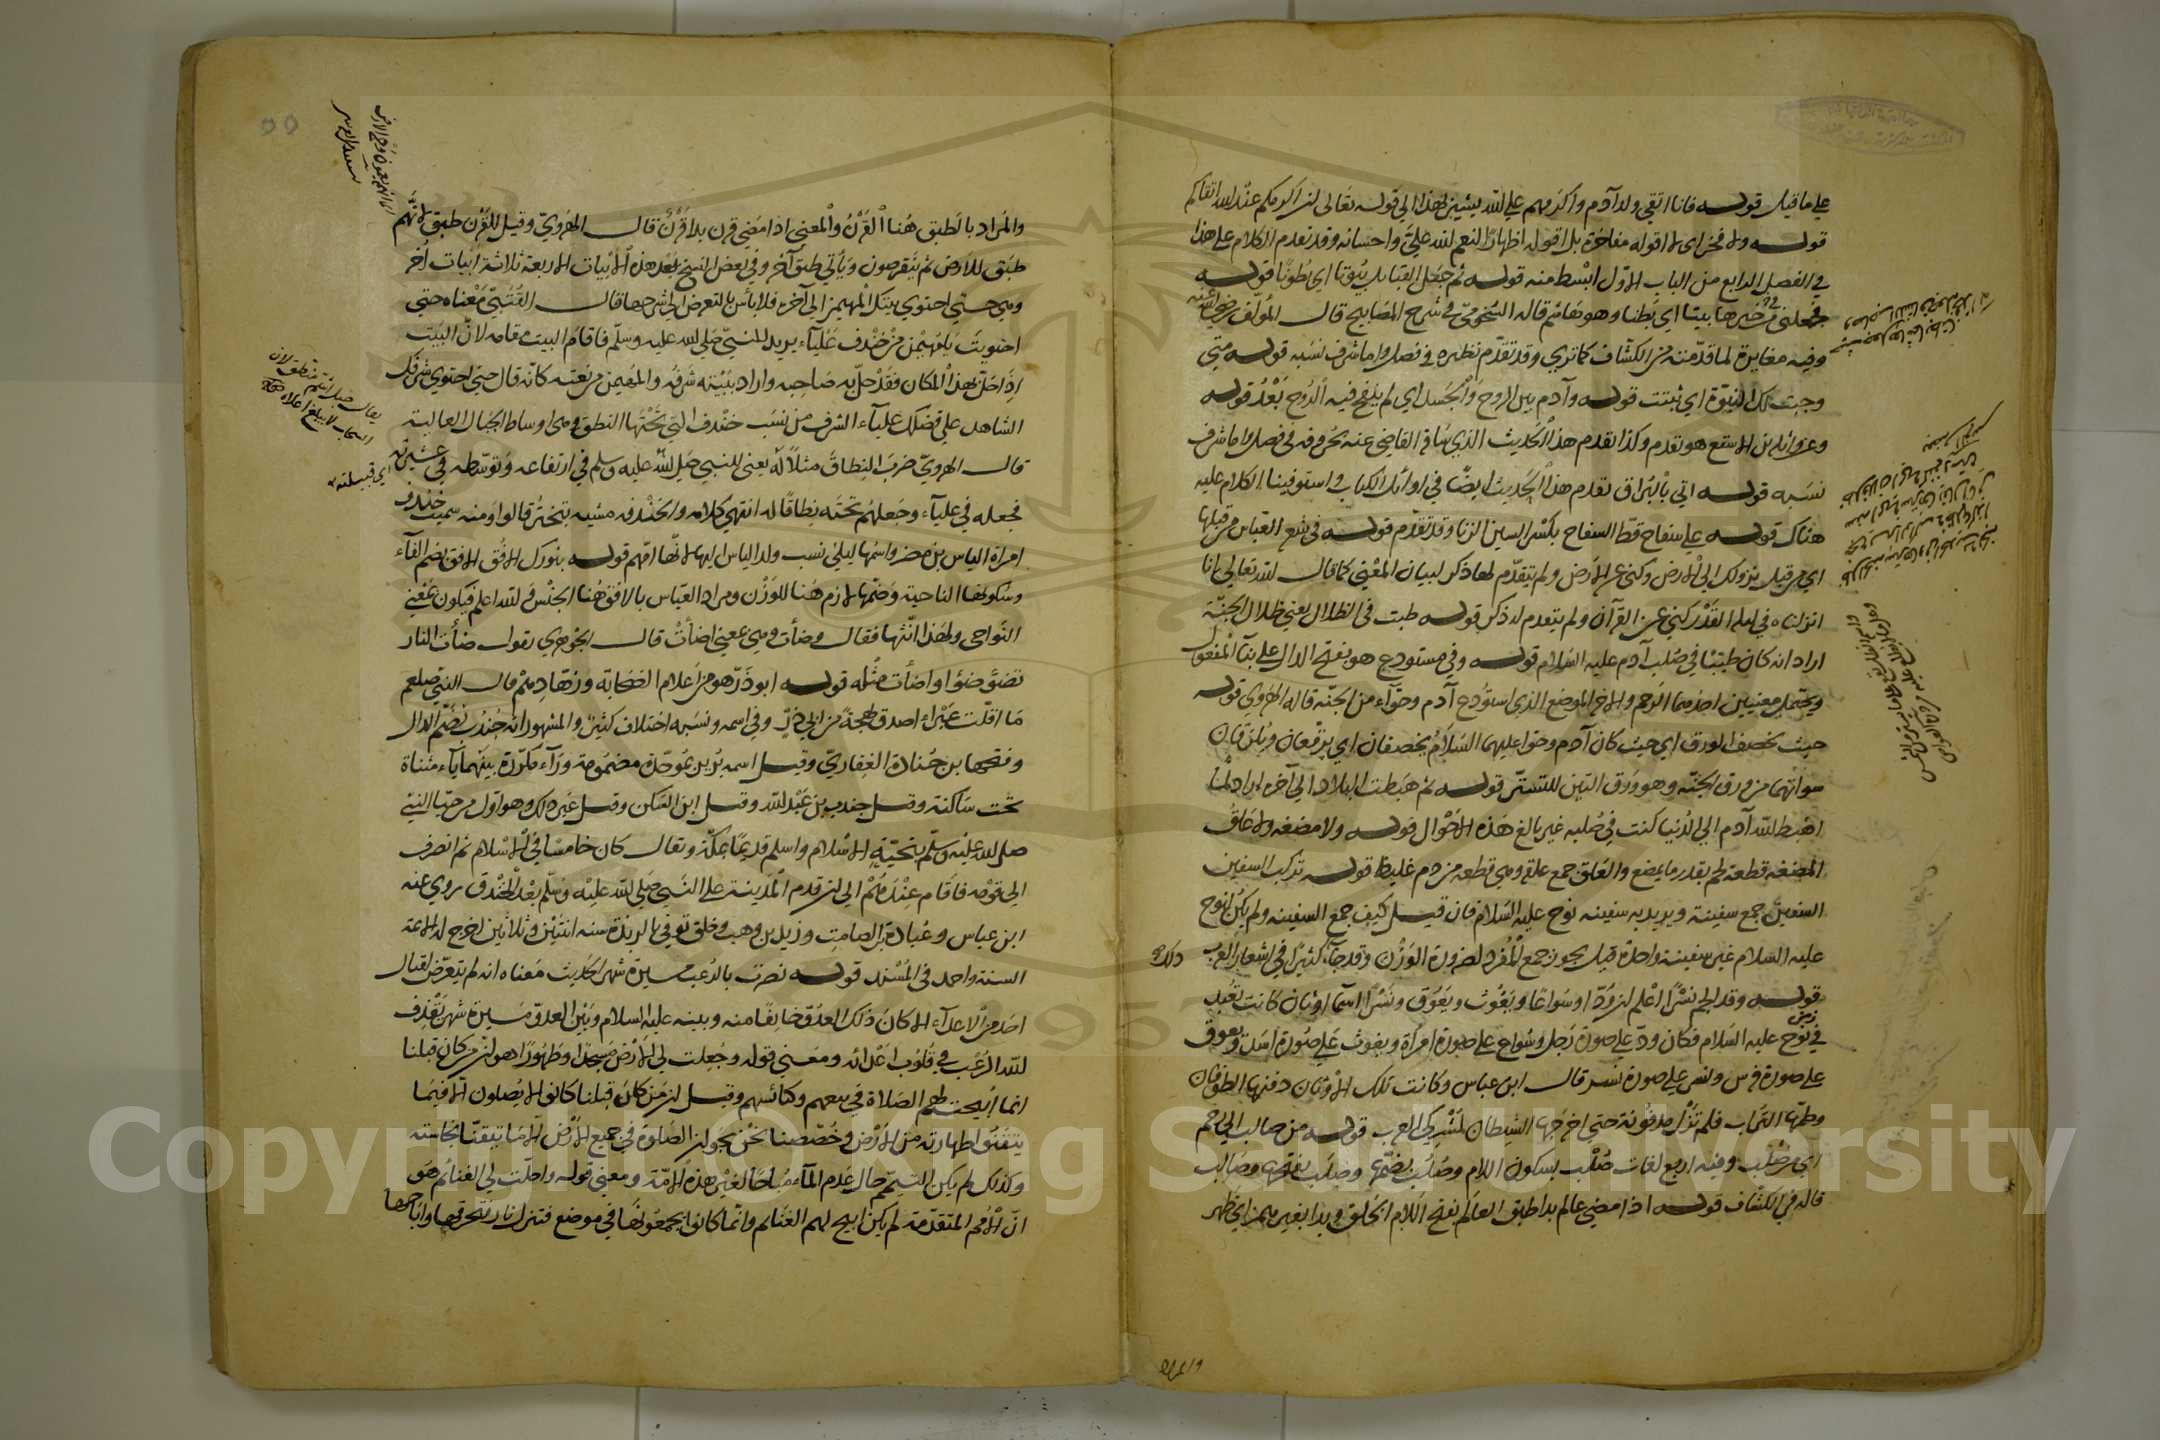 علي ما قيل قوله فانا اتقي ولد آدم واكرمهم علي الله يشير بهذا الي قوله تعالي ان اكرمكم عند الله اتقاكم
قوله ولا فخر اي لا اقوله مفاخرة بل اقوله اظهارًا لنعم الله عليّ واحسانه وقد تقدم الكلام علي هذا
في الفصل الرابع من الباب الاول ابسط منه قوله ثم جعل القبايل بيوتا اي بطونًا قوله
فجعلني في خيرها بيتا اي بطنا وهو هاشم قاله في شرح المصابيح قال المؤلف
وفيه مغايرة لما قدّمته من الكشاف كما تري وقد تقدّم نظيره في فصل واما شرف نسبه قوله متي
وجبت لك النبوّة اي ثبتت قوله وآدم بين الروح والجسد اي لم ينفخ فيه الروح بَعْدُ قوله
وعن واثلة بن الاسقع هو تقدم وكذا تقدم هذا الحديث الذي ساقه القاضي عنه بحروفه في فصل واما شرف
نسبه قوله اتي بالبراق تقدم هذا الحديث ايضًا في اوائل الكتاب واستوفينا الكلام عليه
هناك قوله علي سفاح قط السفاح بكسر السين الزنا وقد تقدّم قوله في شعر العباس من قبلها
اي من قبل نزولك الي الارض وكني عن الارض ولم يتقدّم لها ذكر لبيان المعْني كما قال الله تعالي انا
انزلناه في ليلة القدْر كني عن القرآن ولم يتقدم له ذكر قوله طبت في الظلال يعني ظلال الجنّة
اراد انه كان طيّبًا في صلب آدم عليه السلام قوله وفي مستودع هو بفتح الدال علي بناء المفعول
ويحتمل معنيين احدهما الرحم والاخر الموضع الذي استودع آدم وحوّاء من الجنّة قاله الهروي قوله
حيث يخصف الورق اي حيث كان آدم وحوا عليهما السلام يخصفان اي يرقعان ويلزقان
سوآتهما من ورق الجنّة وهو ورق التين للتستر قوله ثم هبطت البلاد الي آخره اراد لمّا
اهبط الله آدم الي الدنيا كنت في صلبه غير بالغ هذه الاحوال قوله ولا مضغة ولا علق
المضغة قطعة لحم بقدر ما يمضغ والعلق جمع علقة وهي قطعة من دم غليظ قوله تركب السفين
السفين جمع سفينة ويريد به سفينة نوح عليه السلام فان قيل كيف جمع السفينة ولم يكن لنوح
عليه السلام غير سفينة واحدة قيل يجوز جمع المفرد لضرورة الوزن وقد جآء كثيرًا في اشعار العرب ذلك
قوله وقد الجم نسْرًا اعْلم ان ودّا وسواعًا ويغوث ويعوق ونسْرًا اسمآء اوثان كانت تعبد
في زمن نوح عليه السلام فكان ودّ علي صورة رجل وسواع علي صورة امرأة ويغوث علي صورة اسد ويعوق
علي صورة فرس ونسر علي صورة نسر قال ابن عباس وكانت تلك الاوثان دفنها الطوفان
وطمّها التراب فلم تزل مدفونة حتي اخرجها الشيطان لمشركي العرب قوله من صالب الي رحم
اي من صلب وفيه اربع لغات صلْب بسكون اللام وصلُب بضمّها وصلَب بفتحها وصالب
قاله في الكشاف قوله اذا مضي عالم بدا طبق العالم بفتح اللام الخلق وبدا بغير همز اي ظهر
والمراد
والمُراد بالطبق هُنا القَرْنُ والمعني اذا مضي قرن بدا قَرْن قال الهرويّ وقيل للقرْن طبق لانّهم
طبق للارض ثم ينقرضون ويأتي طبق آخر وفي بعض النسخ بعد هذه الابيات الاربعة ثلاثة ابيات أُخر
وهي حتي احتوي بيتك المهيمن الي آخره فلا بأس بالتعرض الي شرحها قال القُتَبيّ مَعْناه حتي
احتويت يا مهيمن من خندف علياء يريد النبي صلي الله عليه وسلم فاقام البيت مقامه لانّ البيت
اذا حلّ بهذا المكان فقد حلّ به صاحبه واراد ببيته شرفه والمهيمن من نعته كانه قال حتي احتوي شرفك
الشاهد علي فضلك علياء الشرف من نسب خندف التي تحتها النطق وهي اوساط الجبال العالية
قال الهرويّ ضربَ النِطاق مثلًا له يعني للنبي صلي الله عليه وسلم في ارتفاعه وتوسّطه في عشيرته
فجعله في علياء وجعلهم تحته نطاقًا له انتهي كلامه والخندفة مشية بتبختُر قالوا ومنه سميت خندف
امرأة الياس بن مضر واسمها ليلي نسب ولد الياس اليها لانّها امّهم قوله بنورك الافق الافق بضم الفآء
وسكونها الناحية وضمّها لازم هُنا للوزْن ومراد العبّاس بالافق هُنا الجنْس والله اعلم فيكون بمعْني
النواحي ولهذا انّثها فقال وضاءَت وهي بمعني اضاءتْ قال الجوهري يقول ضآءت النار
تضؤ ضوْءا واضاءَت مثْله قوله ابو ذرّ هو من اعلام الصحابة وزهّادهم قال النبي صلعم
ما اقلّت غبْراء اصدق لهجةً من ابي ذرّ وفي اسمه ونسبه اختلاف كثير والمشهور انه جُندُب بضم الدال
وفتحها بن جُنادة الغِفاريّ وقيل اسمه بُرير بموحّدة مضمومة ورآء مكرّرة بينهما يآء مثناة
تحت ساكنة وقيل جندب بن عبْد الله وقيل ابن السّكن وقيل غير ذلك وهو اوّل من حيّا النبي
صلي الله عليه وسلّم بتحيّة الاسْلام واسلم قديمًا بمكّة ويقال كان خامسًا في الاسْلام ثم انصرف
الي قومه فاقام عنْدهم الي ان قدم المدينة علي النبي صلي الله عليْه وسلّم بعْد الخندق روي عنه
ابن عباس وعُبادة بن الصامت وزيد بن وهب وخلق توفي بالربذة سنة اثنتين وثلاثين اخرج له الائمة
الستة واحمد في المُسْند قوله نصرت بالرعب مسيرة شهر الحديث معناه انه لم يتعرّض لقتال
احد من الاعدآء الا كان ذلك العدوّ خايفًا منه وبينه عليه السلام وبيْن العدوّ مسيرة شهر يقْذف
الله الرعْب في قُلوب اعْدائه ومعْني قوله وجُعلت لي الارْض مسجدًا وطهُورًا هو ان من كان قبلنا
انما ابيحت لهم الصلاة في بيعهم وكنائسهم وقيل ان من كان قبلنا كانوا لا يصلون الا فيما
يتيقّنوا طهارته من الارْض وخُصّصنا نحْن بجواز الصلوة في جميع الارْض الا ما تيقنّا نجاسته
وكذلك لم يكن التيمّم حال عدم المآء مُباحًا لغيْر هذه الامّة ومعني قوله واحلّت لي الغنائم هو
انّ الامم المتقدّمة لم يكن ابيح لهم الغنائم وانّما كانوا يجمعونها في موضع فتنزل نار فتحرقها واباحها